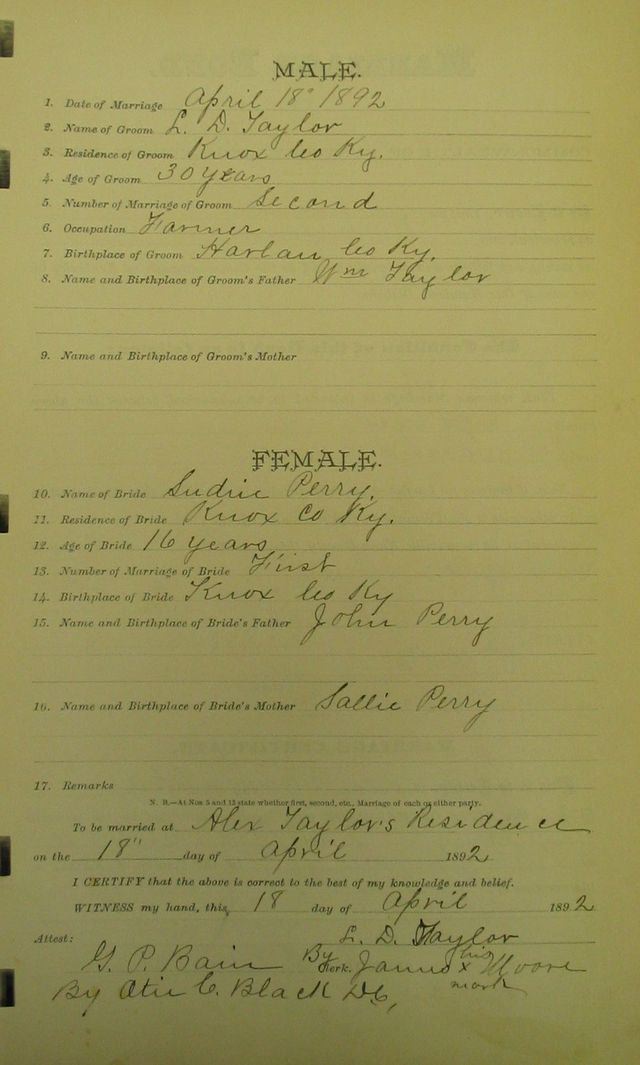 MALE.
1. Date of Marriage April 18" 1892
2. Name of Groom L. D. Taylor
3. Residence of Groom Knox Co Ky.
4. Age of Groom 30 years
5. Number of Marriage of Groom Second
6. Occupation Farmer
7. Birthplace of Groom Harlan Co Ky.
8. Name and Birthplace of Groom's Father Wm Taylor
9. Name and Birthplace of Groom's Mother
FEMALE.
10. Name of Bride Sudie Perry.
11. Residence of Bride Knox Co Ky.
12. Age of Bride 16 years
13. Number of Marriage of Bride First
14. Birthplace of Bride Knox Co Ky
15. Name and Birthplace of Bride's Father John Perry
16. Name and Birthplace of Bride's Mother Sallie Perry
17. Remarks
N. B.—At Nos 5 and 13 state whether first, second, etc., Marriage of each or either party.
To be married at Alex Taylor's Residence
on the 18" day of April 1892
I CERTIFY that the above is correct to the best of my knowledge and belief.
WITNESS my hand, this 18 day of April 1892
L. D. Taylor
Attest:
G. P. Bain Clerk. By James his x Moore
By Otis C. Black DC, mark